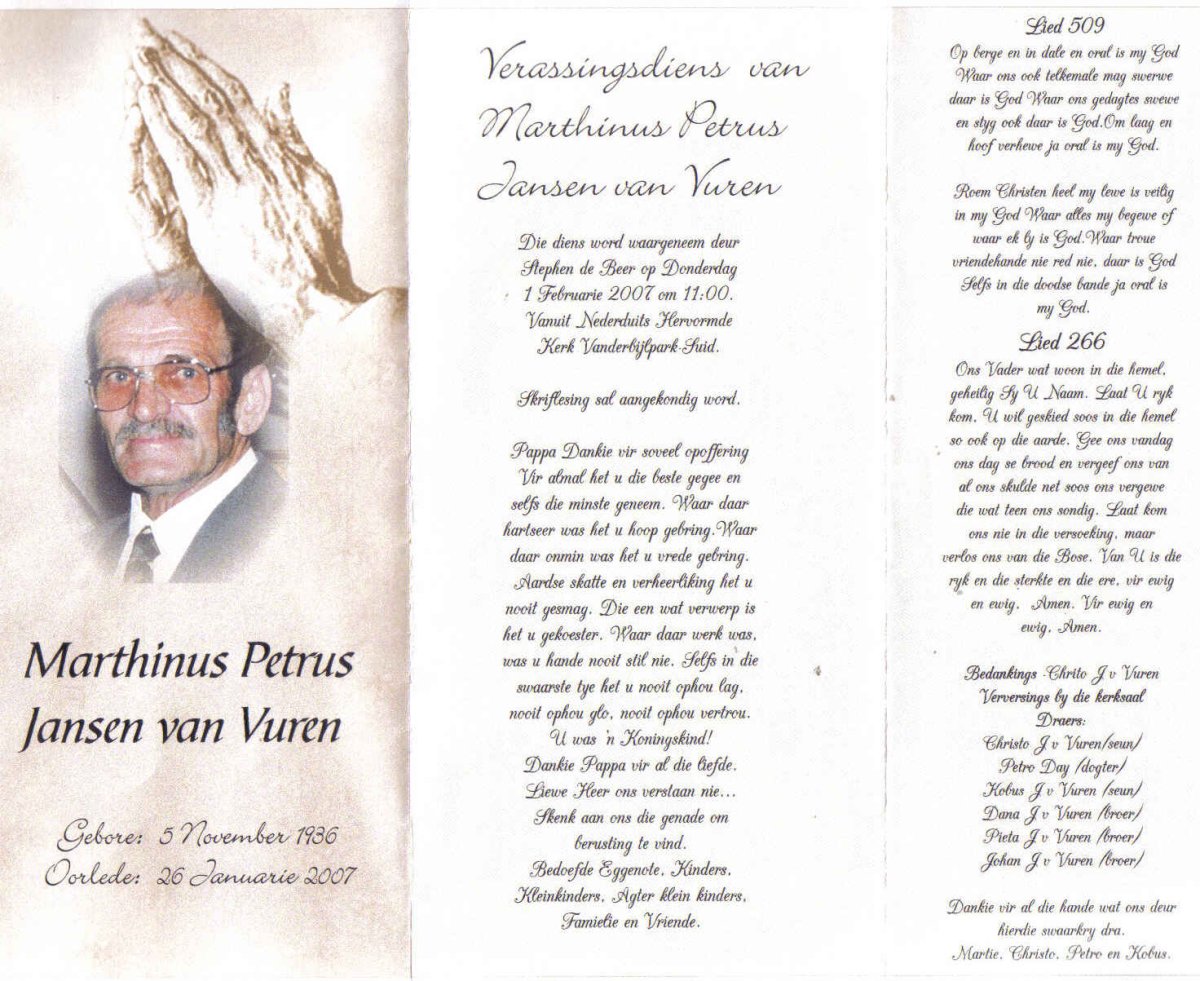 Marthinus Petrus
Jansen van Vuren
Gebore: 5 November 1936
Oorlede: 26 Januarie 2007
Verassingsdiens van
Marthinus Petrus
Jansen van Vuren
Die diens word waargeneem deur
Stephen de Beer op Donderdag
1 Februarie 2007 om 11:00.
Vanuit Nederduits Hervormde
Kerk Vanderbijlpark-Suid.
Skriflesing sal aangekondig word.
Pappa Dankie vir soveel opoffering
Vir almal het u die beste gegee en
selfs die minste geneem. Waar daar
hartseer was het u hoop gebring.Waar
daar onmin was het u vrede gebring.
Aardse skatte en verheerliking het u
nooit gesmag. Die een wat verwerp is
het u gekoester. Waar daar werk was,
was u hande nooit stil nie. Selfs in die
swaarste tye het u nooit ophou lag,
nooit ophou glo, nooit ophou vertrou.
U was 'n Koningskind!
Dankie Pappa vir al die liefde.
Liewe Heer ons verstaan nie...
Skenk aan ons die genade om
berusting te vind.
Bedoefde Eggenote, Kinders,
Kleinkinders, Agter klein kinders,
Famielie en Vriende.
Lied 509
Op berge en in dale en oral is my God
Waar ons ook telkemale mag swerwe
daar is God Waar ons gedagtes swewe
en styg ook daar is God.Om laag en
hoof verhewe ja oral is my God.
Roem Christen heel my lewe is veilig
in my God Waar alles my begewe of
waar ek ly is God.Waar troue
vriendehande nie red nie, daar is God
Selfs in die doodse bande ja oral is
my God.
Lied 266
Ons Vader wat woon in die hemel,
geheilig Sy U Naam. Laat U ryk
kom, U wil geskied soos in die hemel
so ook op die aarde. Gee ons vandag
ons dag se brood en vergeef ons van
al ons skulde net soos ons vergewe
die wat teen ons sondig. Laat kom
ons nie in die versoeking, maar
verlos ons van die Bose. Van U is die
ryk en die sterkte en die ere, vir ewig
en ewig. Amen. Vir ewig en
ewig, Amen.
Bedankings -Chrito J v Vuren
Verversings by die kerksaal
Draers:
Christo J v Vuren/seun/
Petro Day /dogter/
Kobus J v Vuren /seun/
Dana J v Vuren /broer/
Pieta J v Vuren /broer/
Johan J v Vuren /broer/
Dankie vir al die hande wat ons deur
hierdie swaarkry dra.
Martie, Christo, Petro en Kobus.